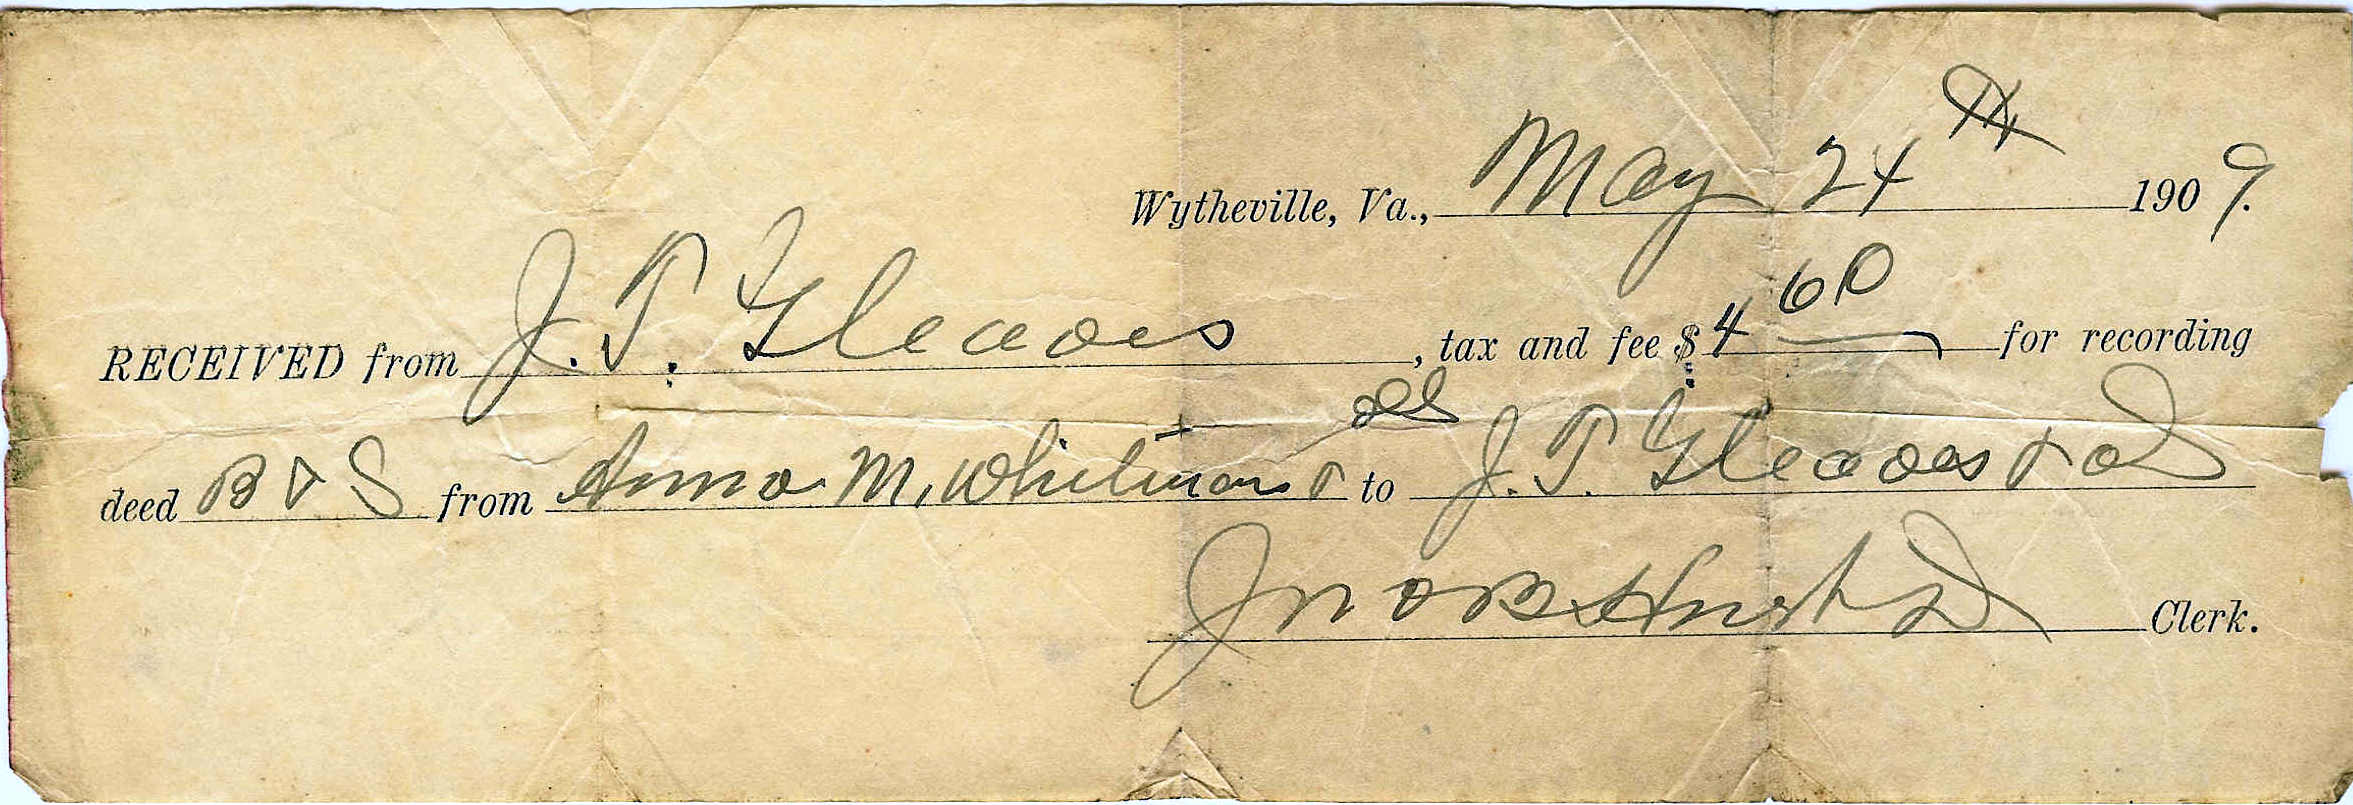 Wytheville, Va., May 24th 1909.
RECEIVED from J. T. Gleaves, tax and fee $4 60 for recording
deed B & S from Anna M. Whitman & als to J. T. Gleaves & al
Jno B Hurt Clerk.